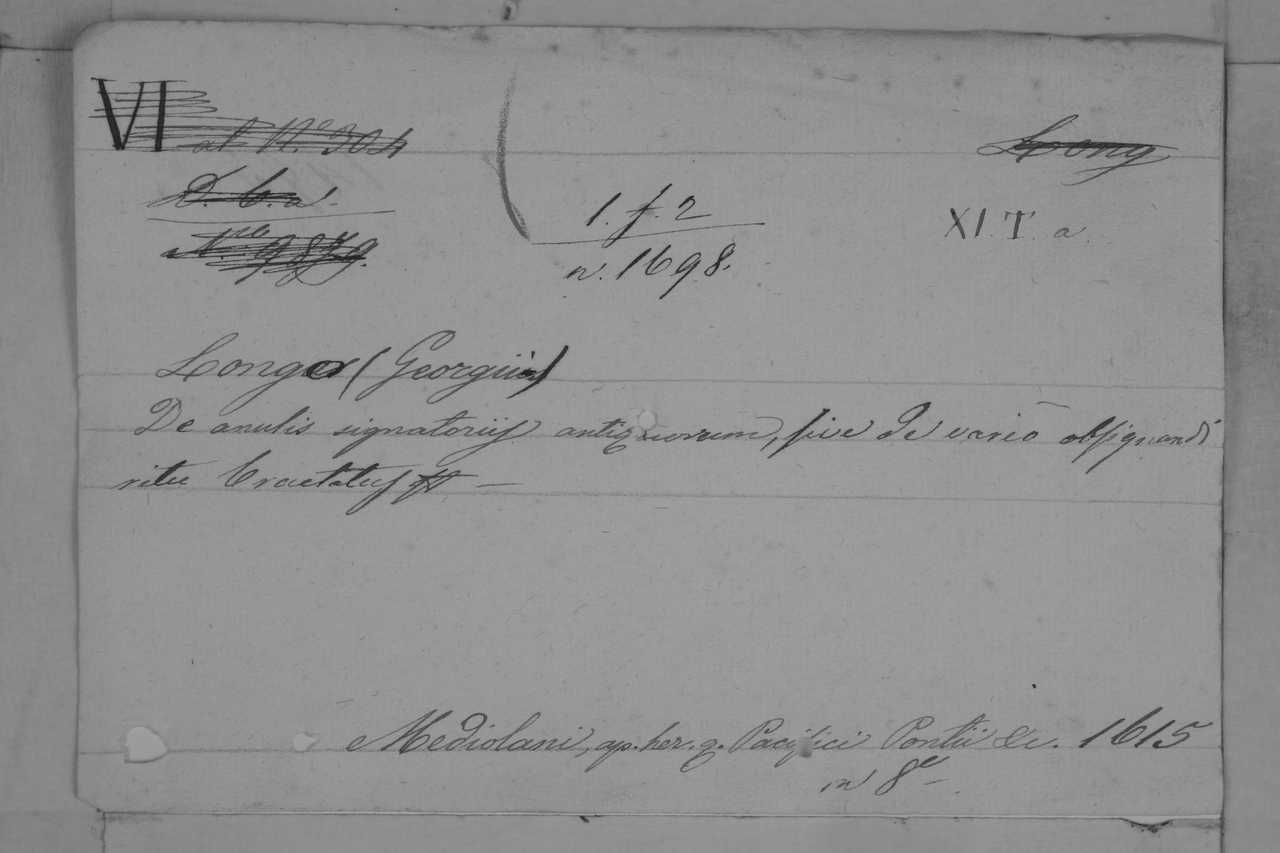 VI al N.º 304
Long
D. b. a.
1. f. 2
XI. T. a.
N.ro 9879.
n. 1698.
Longo (Georgius)
De anulis signatoriis antiquorum, sive de vario obsignandi
ritu tractatus —
Mediolani, ap. her. q. Pacifici Pontii &c. 1615
in 8º —